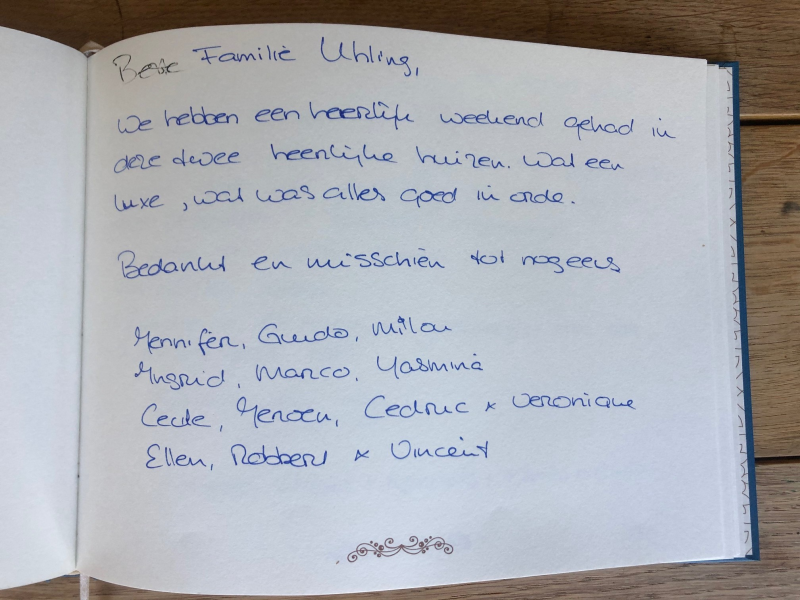 Beste Familie Uhling,
We hebben een heerlijk weekend gehad in
deze twee heerlijke huizen. Wat een
luxe, wat was alles goed in orde.
Bedankt en misschien tot nog eens
Jennifer, Guido, Milou
Ingrid, Marco, Yasmina
Cecile, Jeroen, Cedric & Veronique
Ellen, Robbert & Vincent